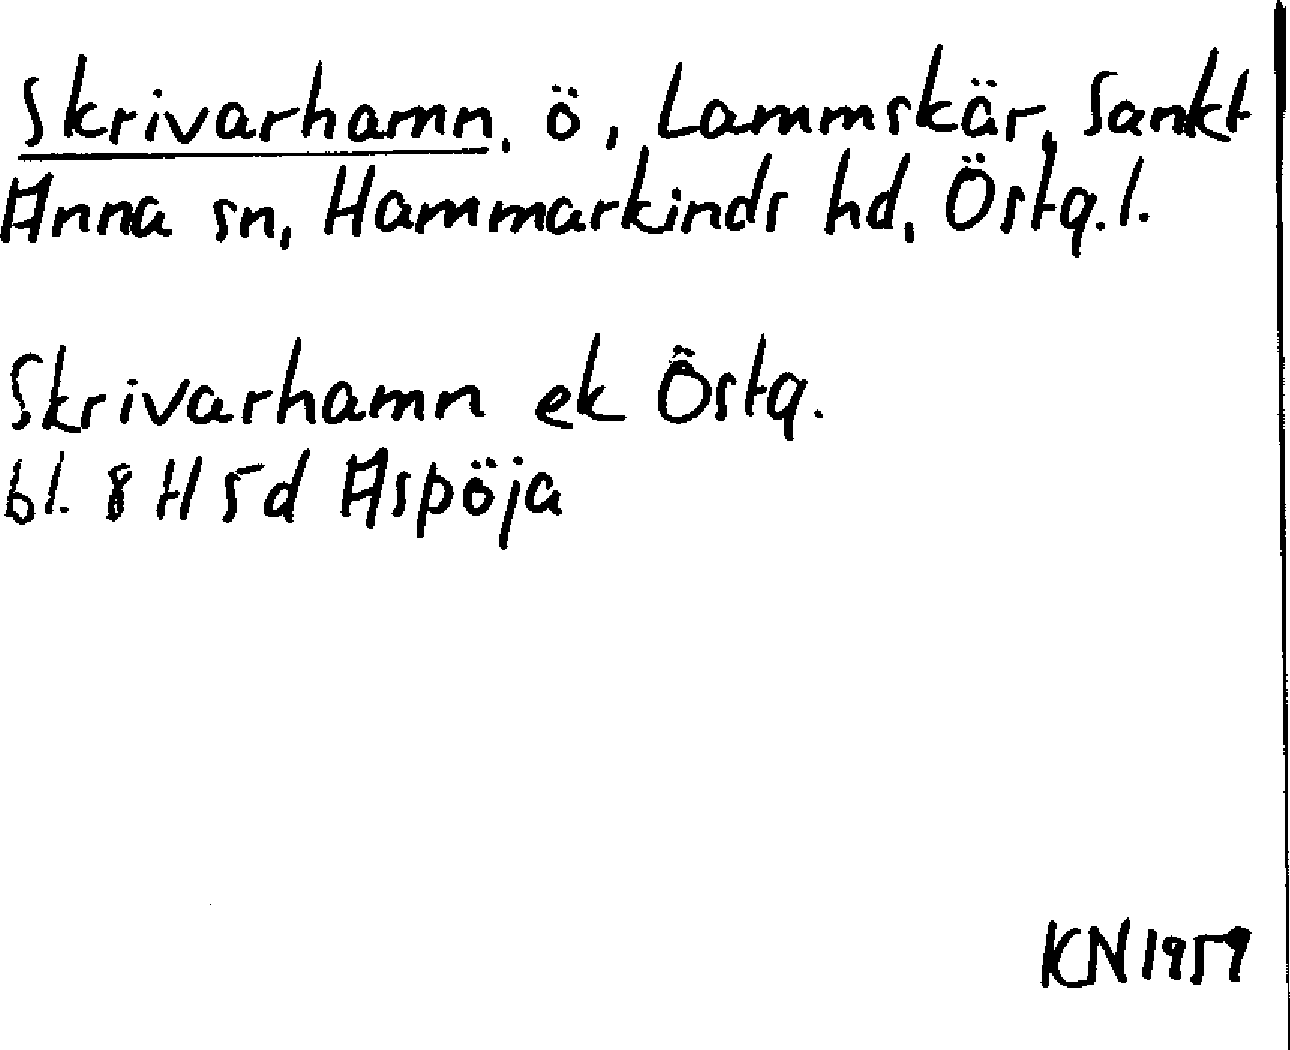 Skrivarhamn, ö, Lammskär, Sankt
Anna sn, Hammarkinds hd, Östg.l.
Skrivarhamn ek Östg.
bl. 8 H 5d Aspöja
KN 1959